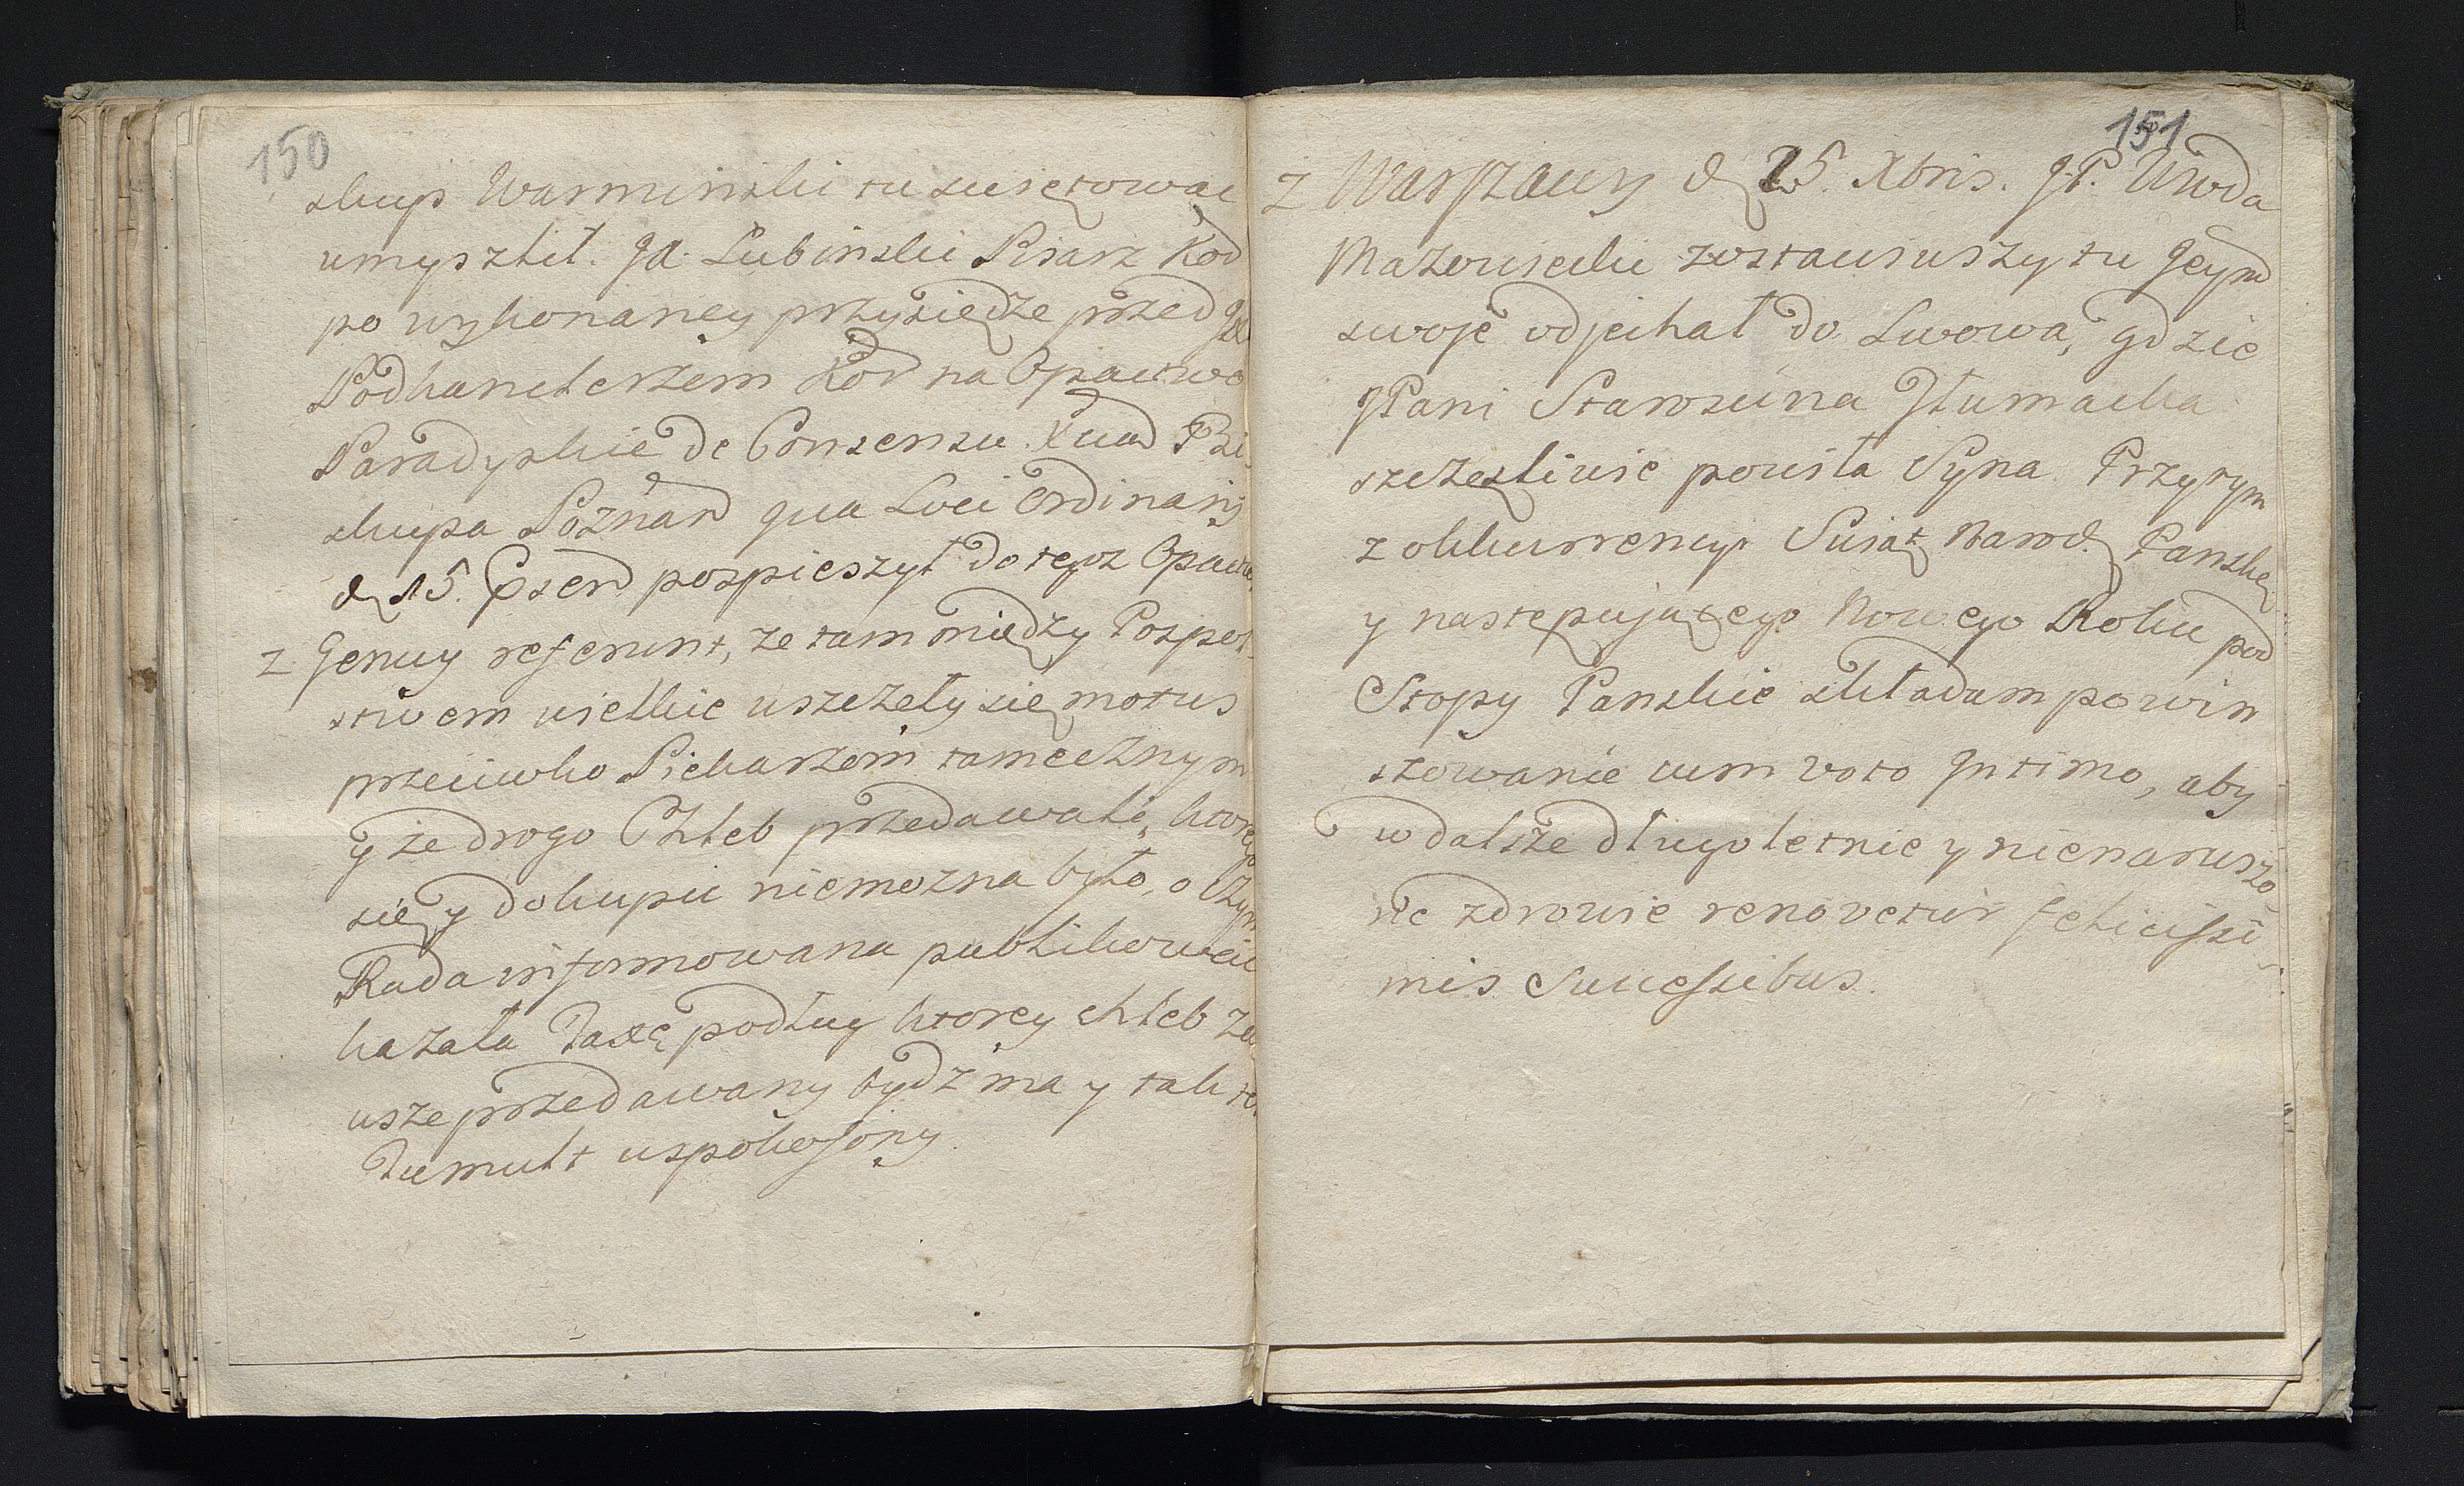 150
skup Warminski tu swiętowac
umyszlił. Jd. Lubinski Pisarz Kor
po wykonaney przysiędze przed
Podkanclerzem Kor na Opactwo
Paradyskie de Consensu Xiąd Bi
skupa Poznan qua Loci Ordinarij
d 15. pospieszył do tegoz Opactw
z Genuy referunt, ze tam między Pospol
stwem wielkie wszczeły się motus
przeciwko Piekarzom tamecznym
y że drogo Chleb przedawali, ktorego
się y dokupić niemozna było, o czym
Rada informowana publikować
kazała Taxę podług ktorey chleb za
wsze przedawany bydź ma y tak ten
Tumult uspokojony.
151
z Warszawy d 25. Xbris. JP. Wwoda
Mazowiecki zostawiwszy tu Jeym
swoję odjechał do Lwowa, gdzie
JPani Starościna Tłumacka
szczęzliwie powiła Syna. Przytym
z okkurrencyi Swiąt Narod. Panskie
y następującego Nowego Roku pod
Stopy Panskie składam powin
szowanie cum voto Intimo, aby
w dalsze długoletnie y nienaruszo
ne zdrowie renovetur felicissi
mis Successibus.